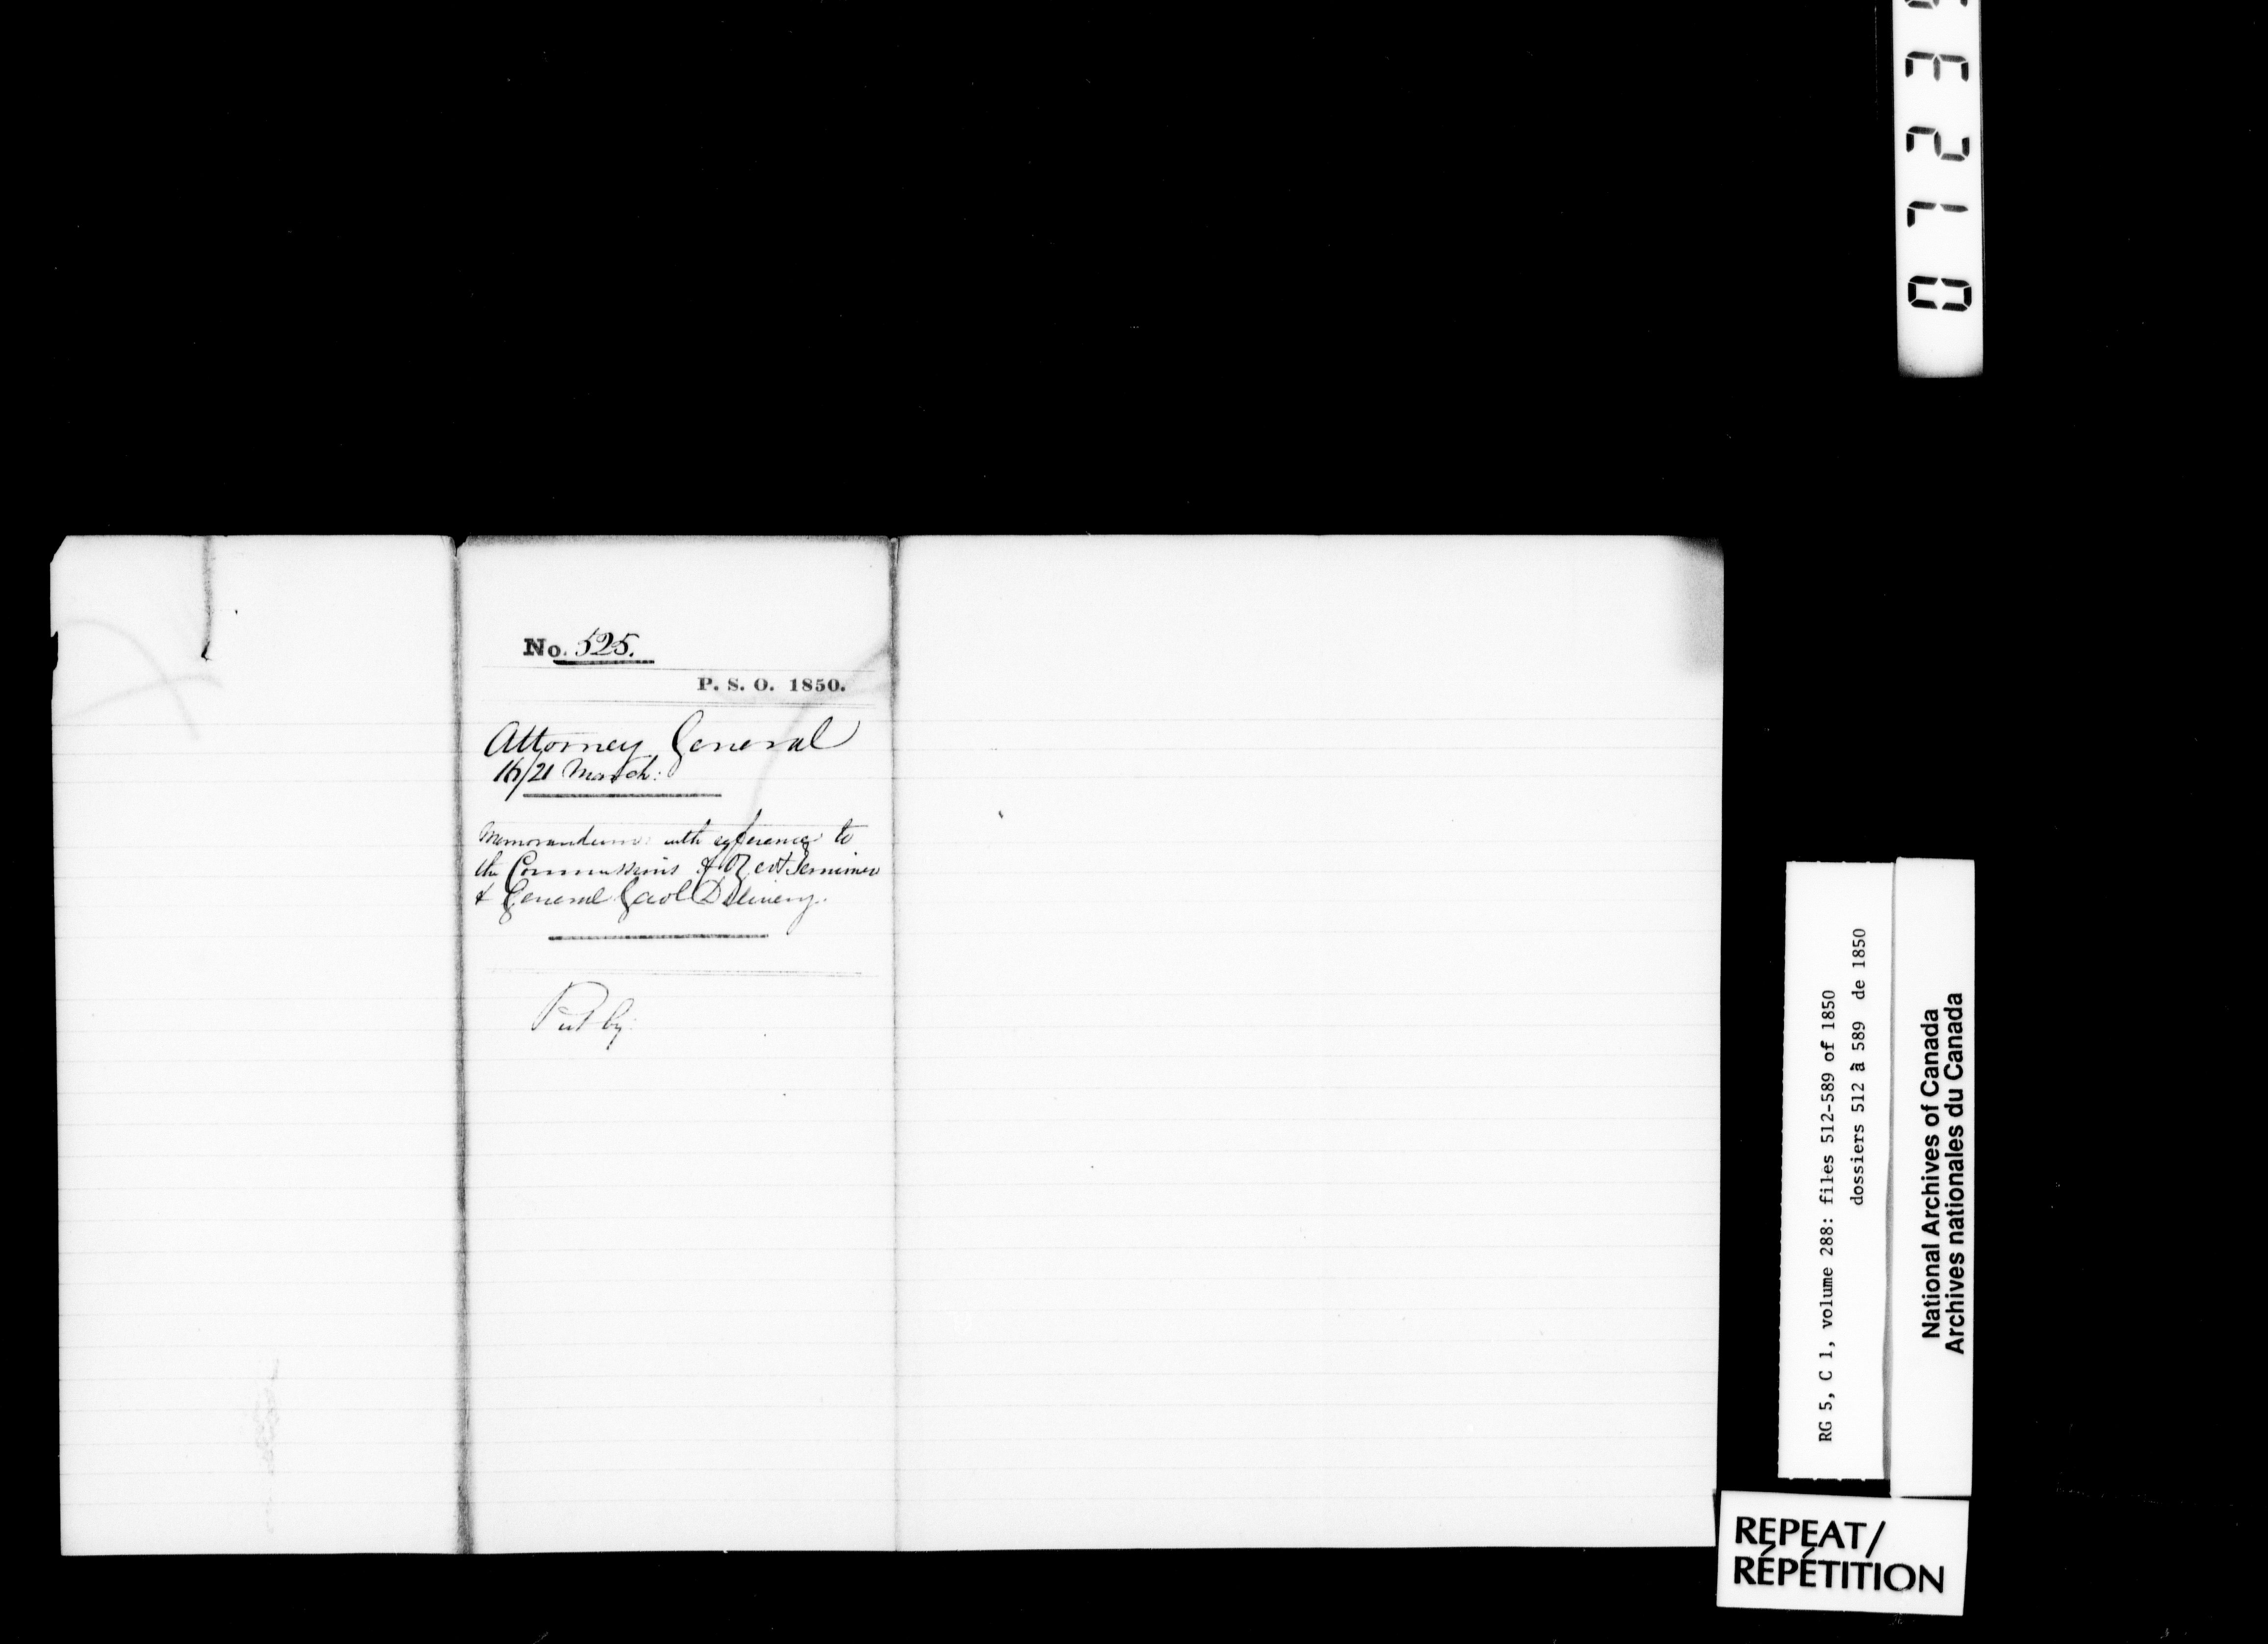 No. 525.
P. S. O. 1850.
Attorney General
16/21 March:
Memorandum: with reference to
the Commissions of Oyer & Terminer
& General Gaol Delivery.
Put by.
RG 5, C 1, volume 288: files 512-589 of 1850
dossiers 512 à 589 de 1850
National Archives of Canada
Archives nationales du Canada
REPEAT/
RÉPÉTITION